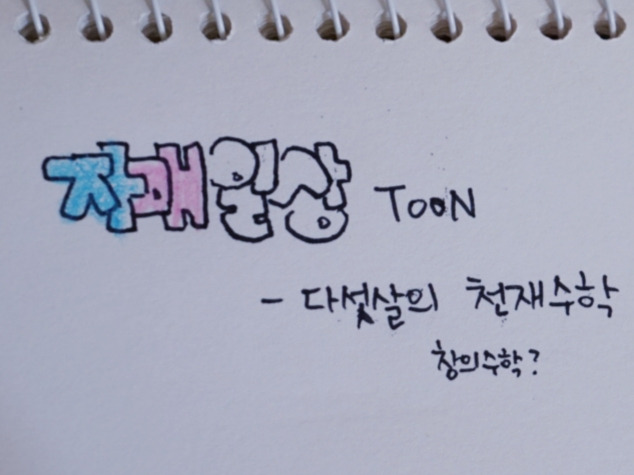 자패일상 TOON
- 다섯살의 천재수학
창의수학?